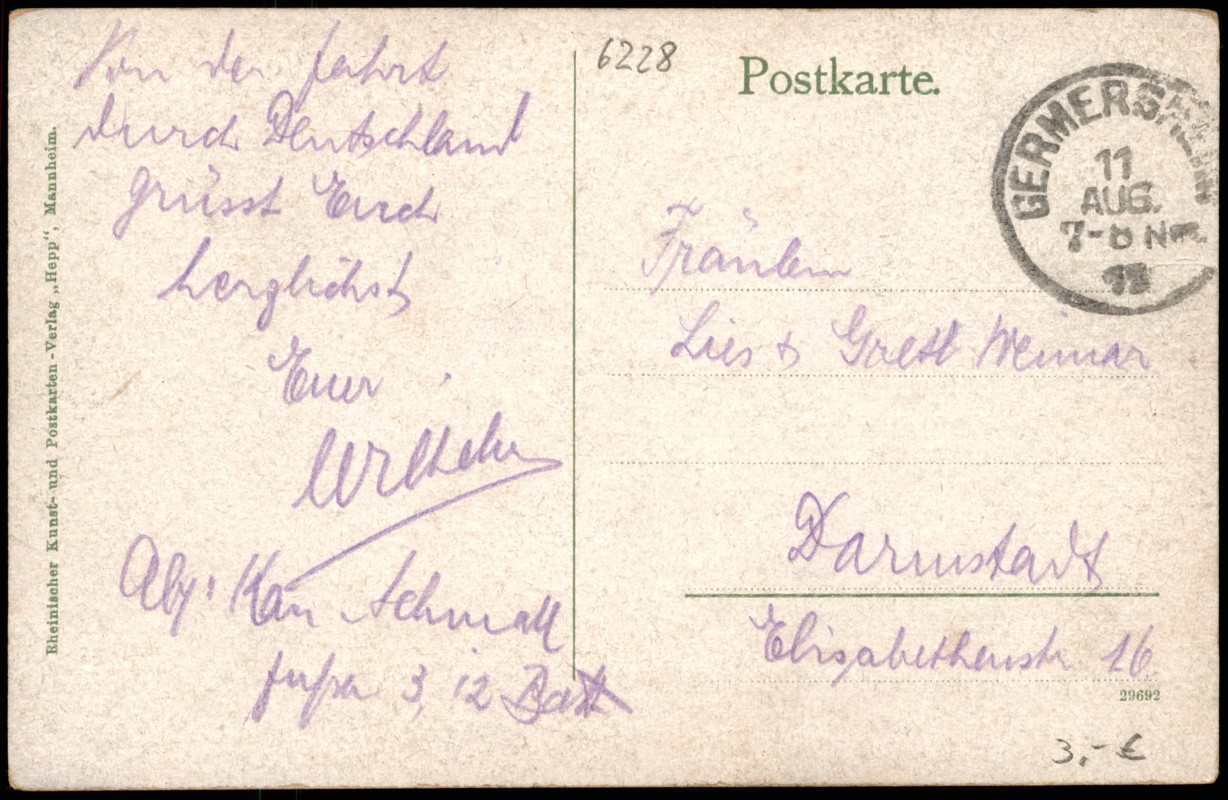 Von der Fahrt
durch Deutschland
grüsst Euch
herzlichst
Euer
Wilhelm
Abs: Kan Schmall
3, 12 Batt
Rheinischer Kunst- und Postkarten-Verlag „Hepp“, Mannheim.
6228
Postkarte.
GERMERSHEIM
11
AUG.
7-8 N
Fräulein
Lies & Gretl Weimar
Darmstadt
Elisabethenstr. 16
29692
3,- €